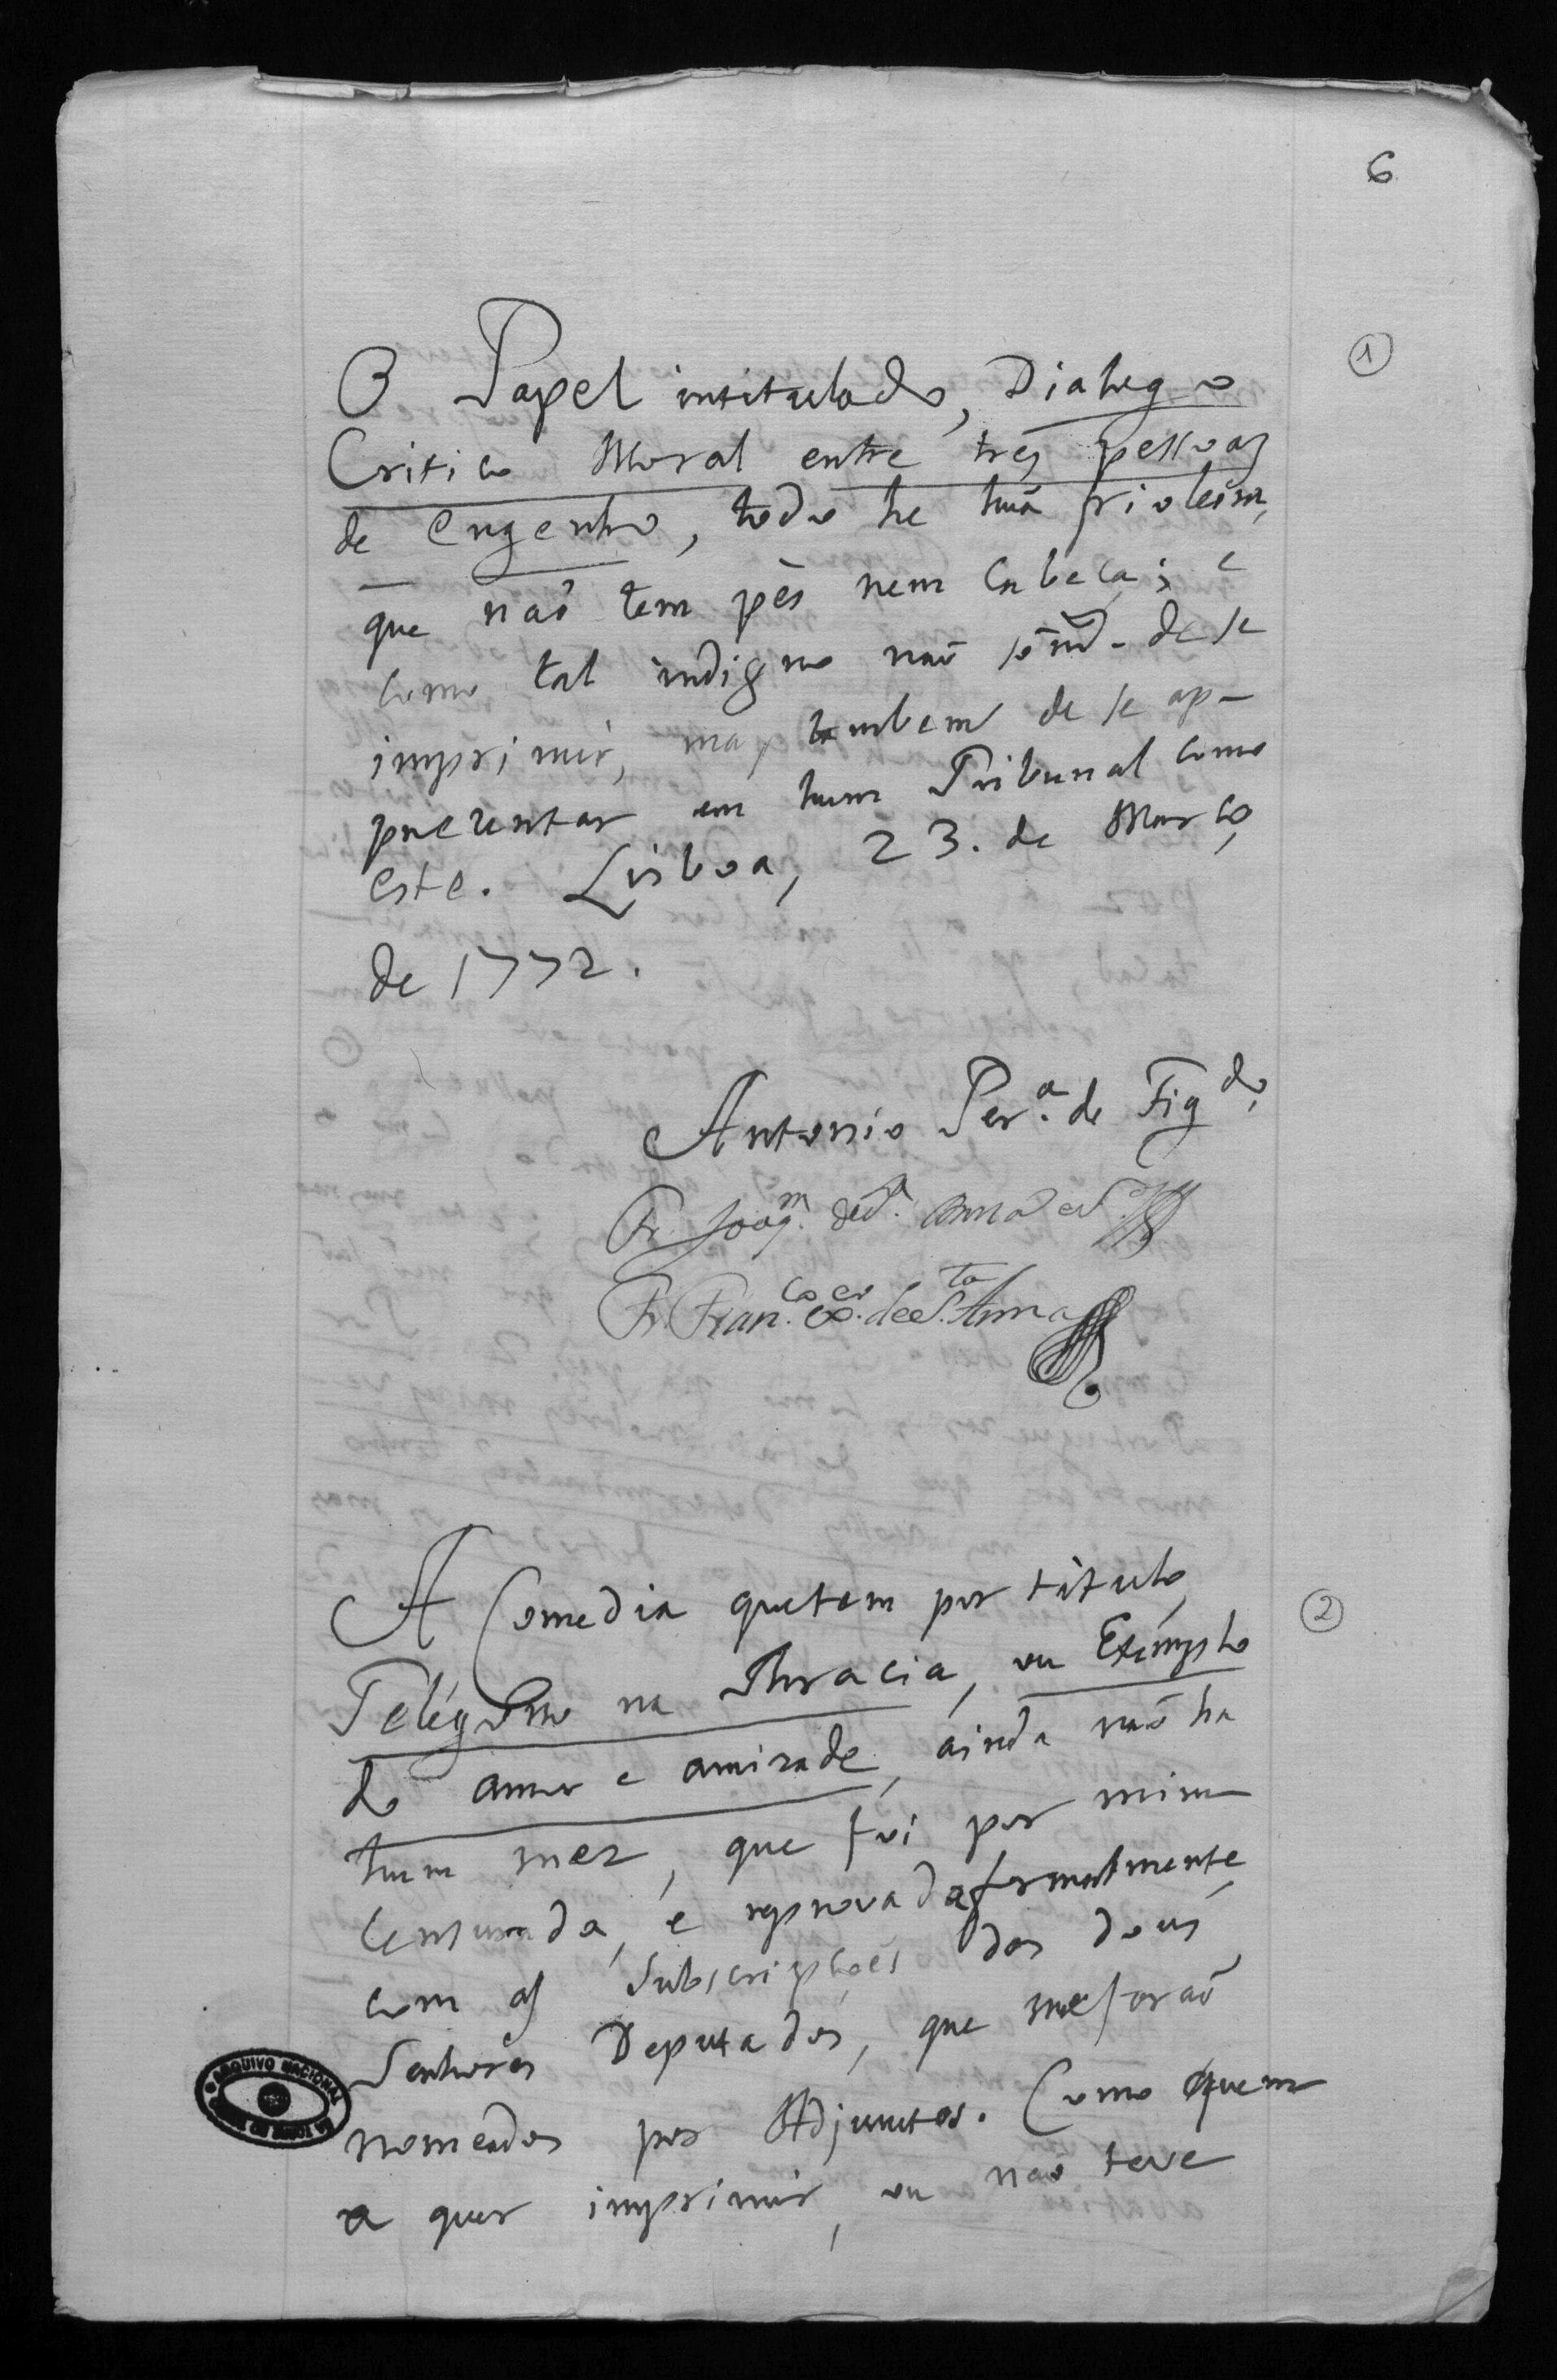 6
1
O Papel intitulado, Dialogo
Critico Moral entre três pessoas
de engenho, todo he huã frioleira,
que naõ tem pés nem cabeça; e
como tal indigno naõ sómte. de se
imprimir, mas tambem de se ap-
prezentar em hum Tribunal como
este. Lisboa, 23. de Março
de 1772.
Antonio Per.a de Figdo.
Fr. Joaqm. de S.
Fr. Franco. Xer. de S.ta Anna
2
A Comedia que tem por titulo,
Telégono na Thracia, ou Exemplo
do amor e amizade, ainda naõ ha
hum mez, que foi por mim
censurada, e reprovada formalmente
com as Subscripçoẽs dos dous
Senhores Deputados, que me foraõ
nomeados por Adjuntos. Como quem
a quer imprimir, ou naõ teve
ARQUIVO NACIONAL DA TORRE DO TOMBO